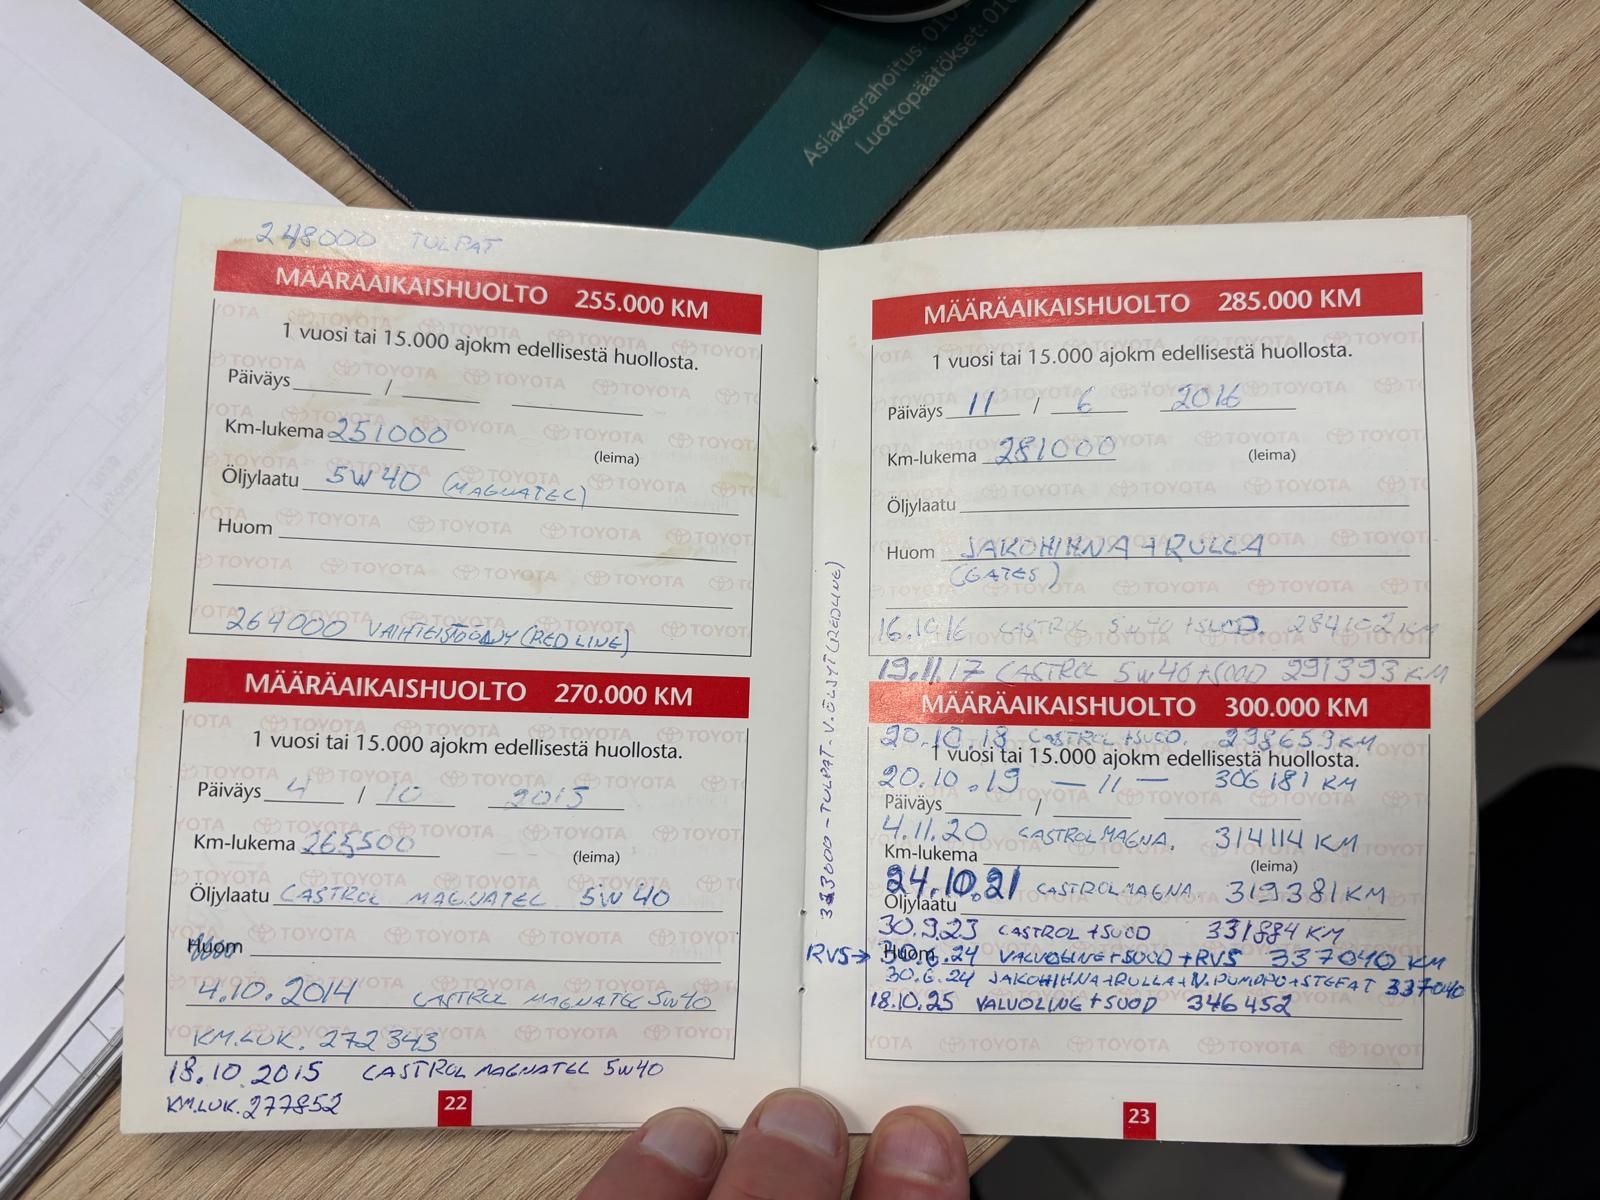 Asiakasrahoitus: 010
Luottopäätökset: 010
248000 TULPAT
MÄÄRÄAIKAISHUOLTO 255.000 KM
1 vuosi tai 15.000 ajokm edellisestä huollosta.
Päiväys / 
Km-lukema 251000
(leima)
Öljylaatu 5W40 (MAGNATEC)
Huom
264000 VAIHTEISTOÖLJY (RED LINE)
MÄÄRÄAIKAISHUOLTO 270.000 KM
1 vuosi tai 15.000 ajokm edellisestä huollosta.
Päiväys 4 / 10 2015
Km-lukema 265500
(leima)
Öljylaatu CASTROL MAGNATEC 5W40
Huom
4.10.2014 CASTROL MAGNATEC 5W40
KM.LUK. 272343
18.10.2015 CASTROL MAGNATEC 5W40
KM.LUK. 277852
22
333000 - TULPAT - V.ÖLJYT (REDLINE)
MÄÄRÄAIKAISHUOLTO 285.000 KM
1 vuosi tai 15.000 ajokm edellisestä huollosta.
Päiväys 11 / 6 2016
Km-lukema 281000
(leima)
Öljylaatu
Huom JAKOHIHNA + RULLA
(GATES)
16.10.16 CASTROL 5W40 + SUOD. 284102 KM
19.11.17 CASTROL 5W40 + SUOD 291393 KM
MÄÄRÄAIKAISHUOLTO 300.000 KM
20.10.18 CASTROL + SUOD. 298659 KM
1 vuosi tai 15.000 ajokm edellisestä huollosta.
20.10.19 — 11 — 306181 KM
Päiväys /
4.11.20 CASTROL MAGNA. 314114 KM
Km-lukema
(leima)
24.10.21 CASTROL MAGNA. 319381 KM
Öljylaatu
30.9.23 CASTROL + SUOD 331884 KM
Huom
RVS→ 30.6.24 VALVOLINE + SUOD + RVS 337040 KM
30.6.24 JAKOHIHNA + RULLA + V.PUMPPU + STEFAT 337040
18.10.25 VALVOLING + SUOD 346452
23